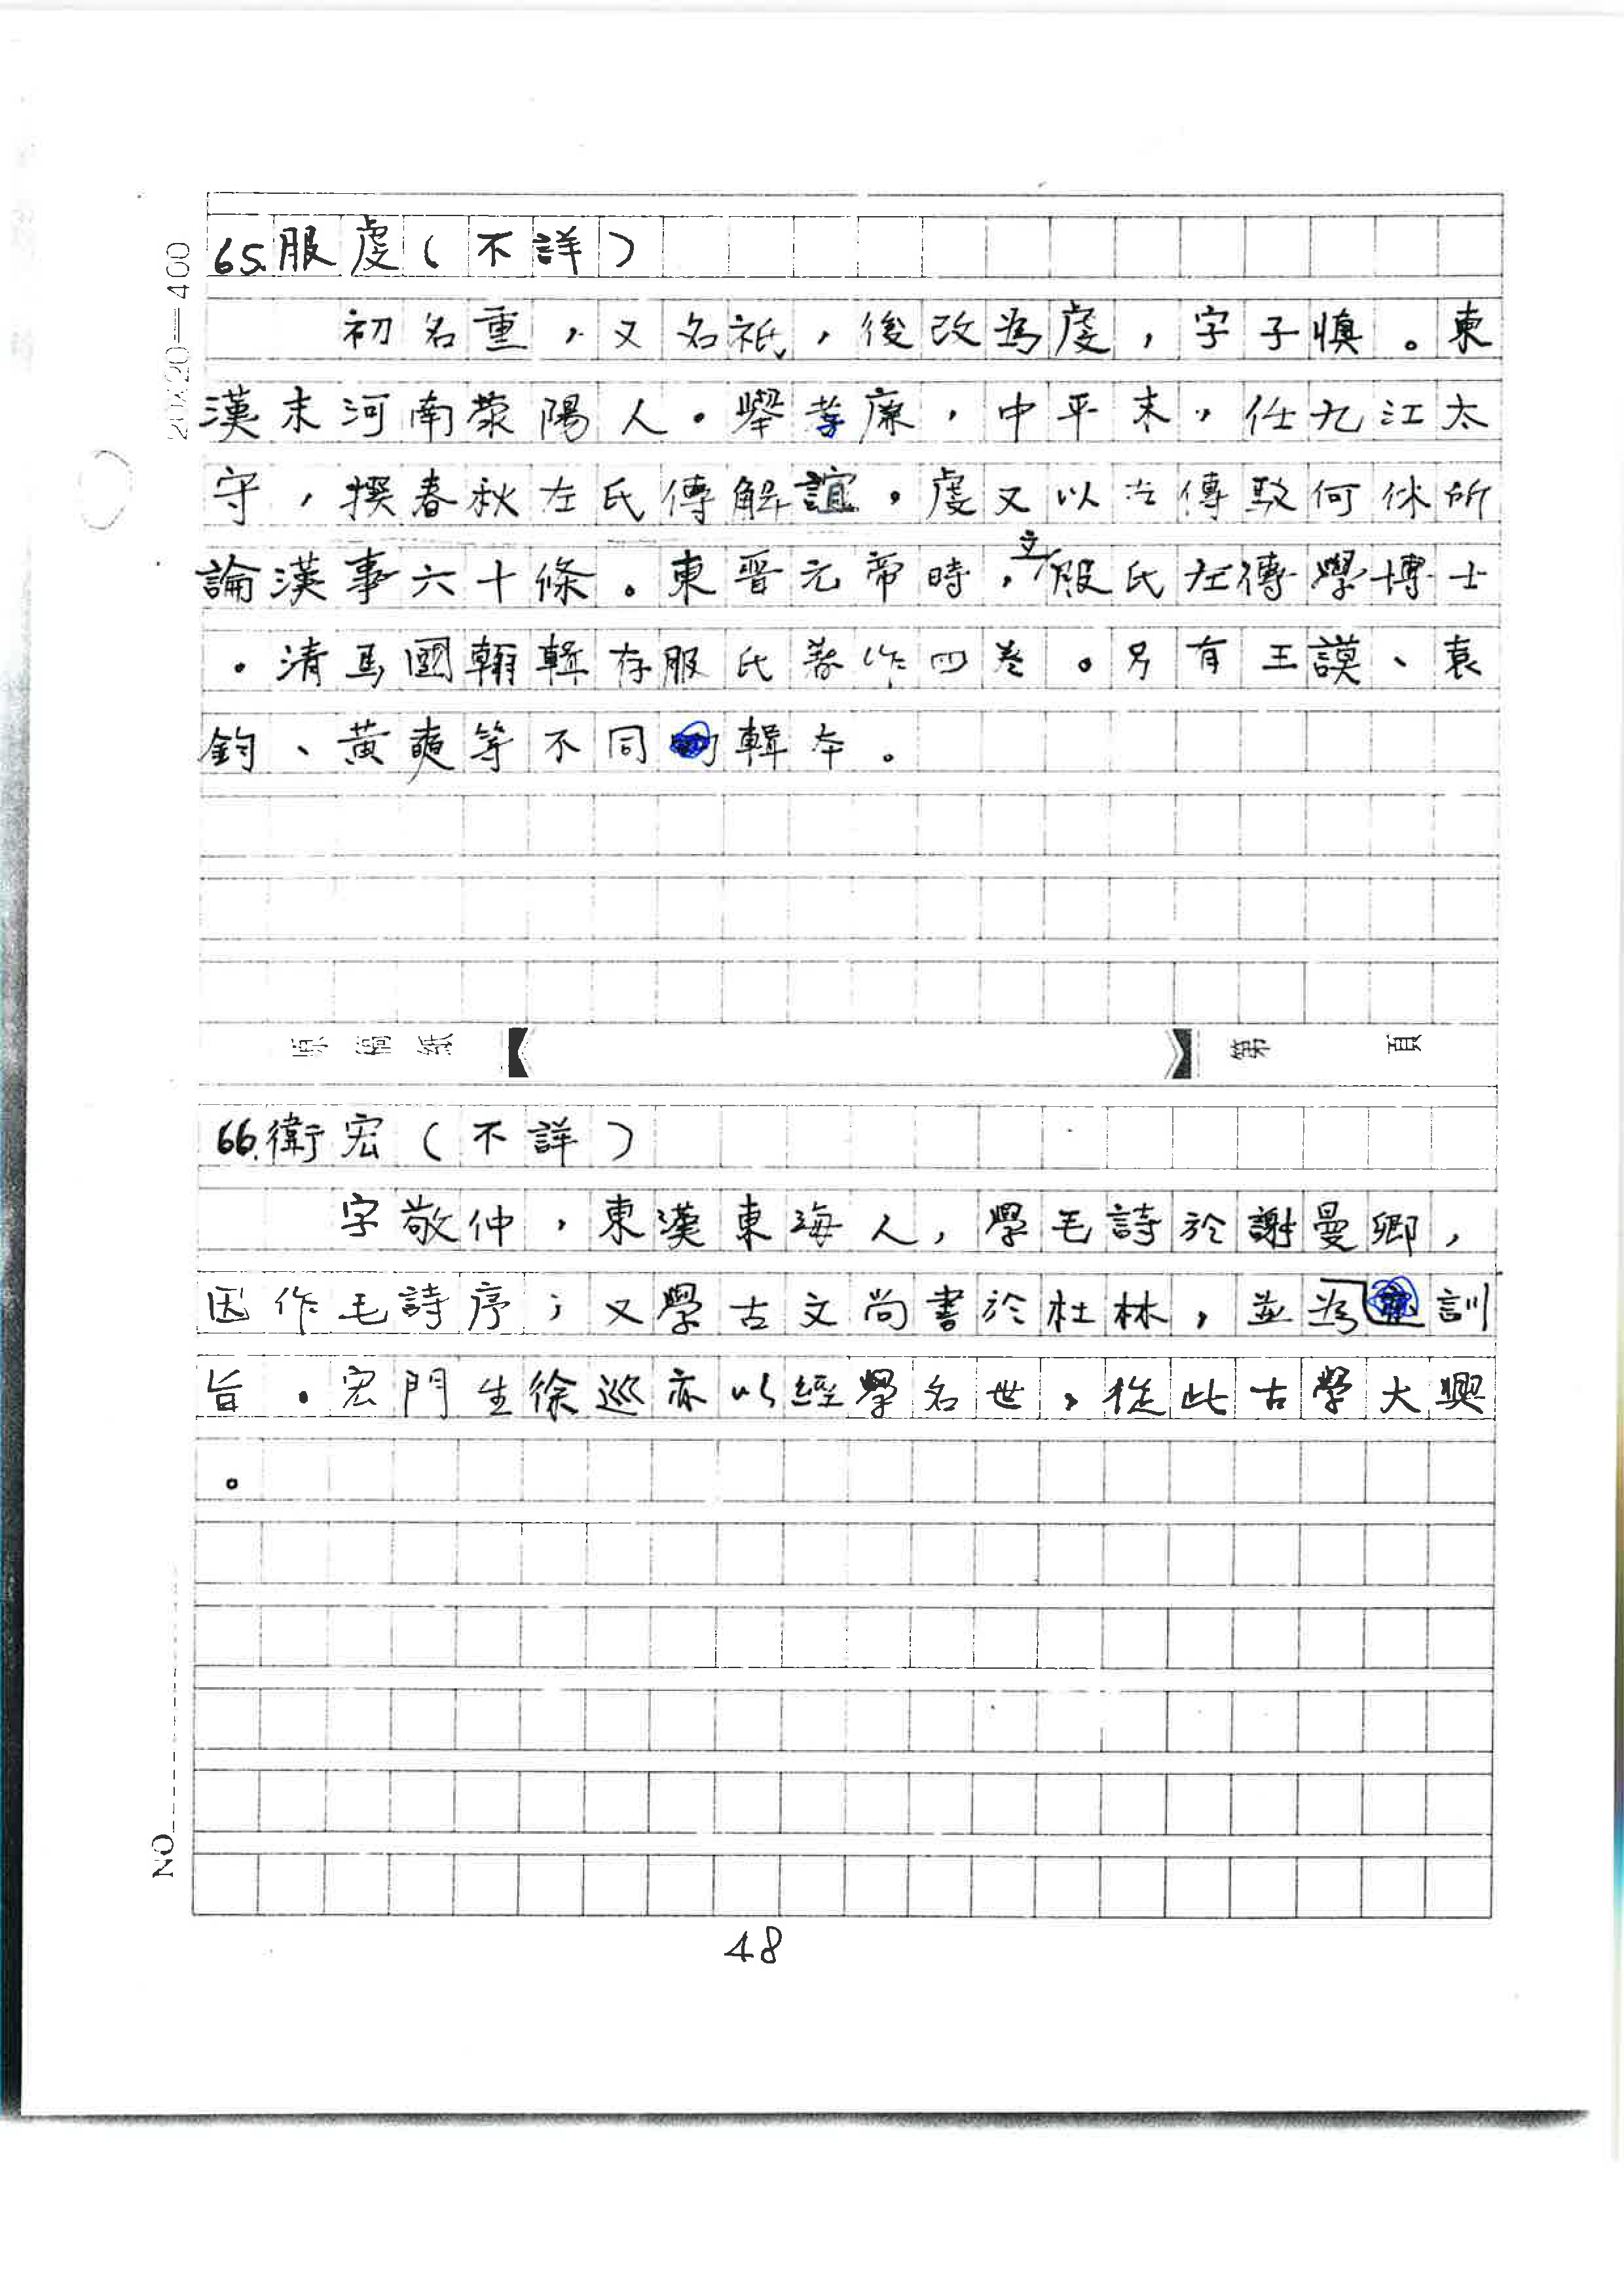 20×20=400
65.服虔(不詳)
初名重,又名祇,後改為虔,字子慎。東
漢末河南滎陽人。舉孝廉,中平末,任九江太
守,撰春秋左氏傳解誼。虔又以左傳駁何休所
論漢事六十條。東晉元帝時,立服氏左傳學博士
。清馬國翰輯存服氏著作四卷。另有王謨、袁
鈞、黃奭等不同輯本。
原稿紙 第 頁
66.衛宏(不詳)
字敬仲,東漢東海人,學毛詩於謝曼卿,
因作毛詩序;又學古文尚書於杜林,並為訓
旨。宏門生徐巡亦以經學名世,從此古學大興
。
NO
48